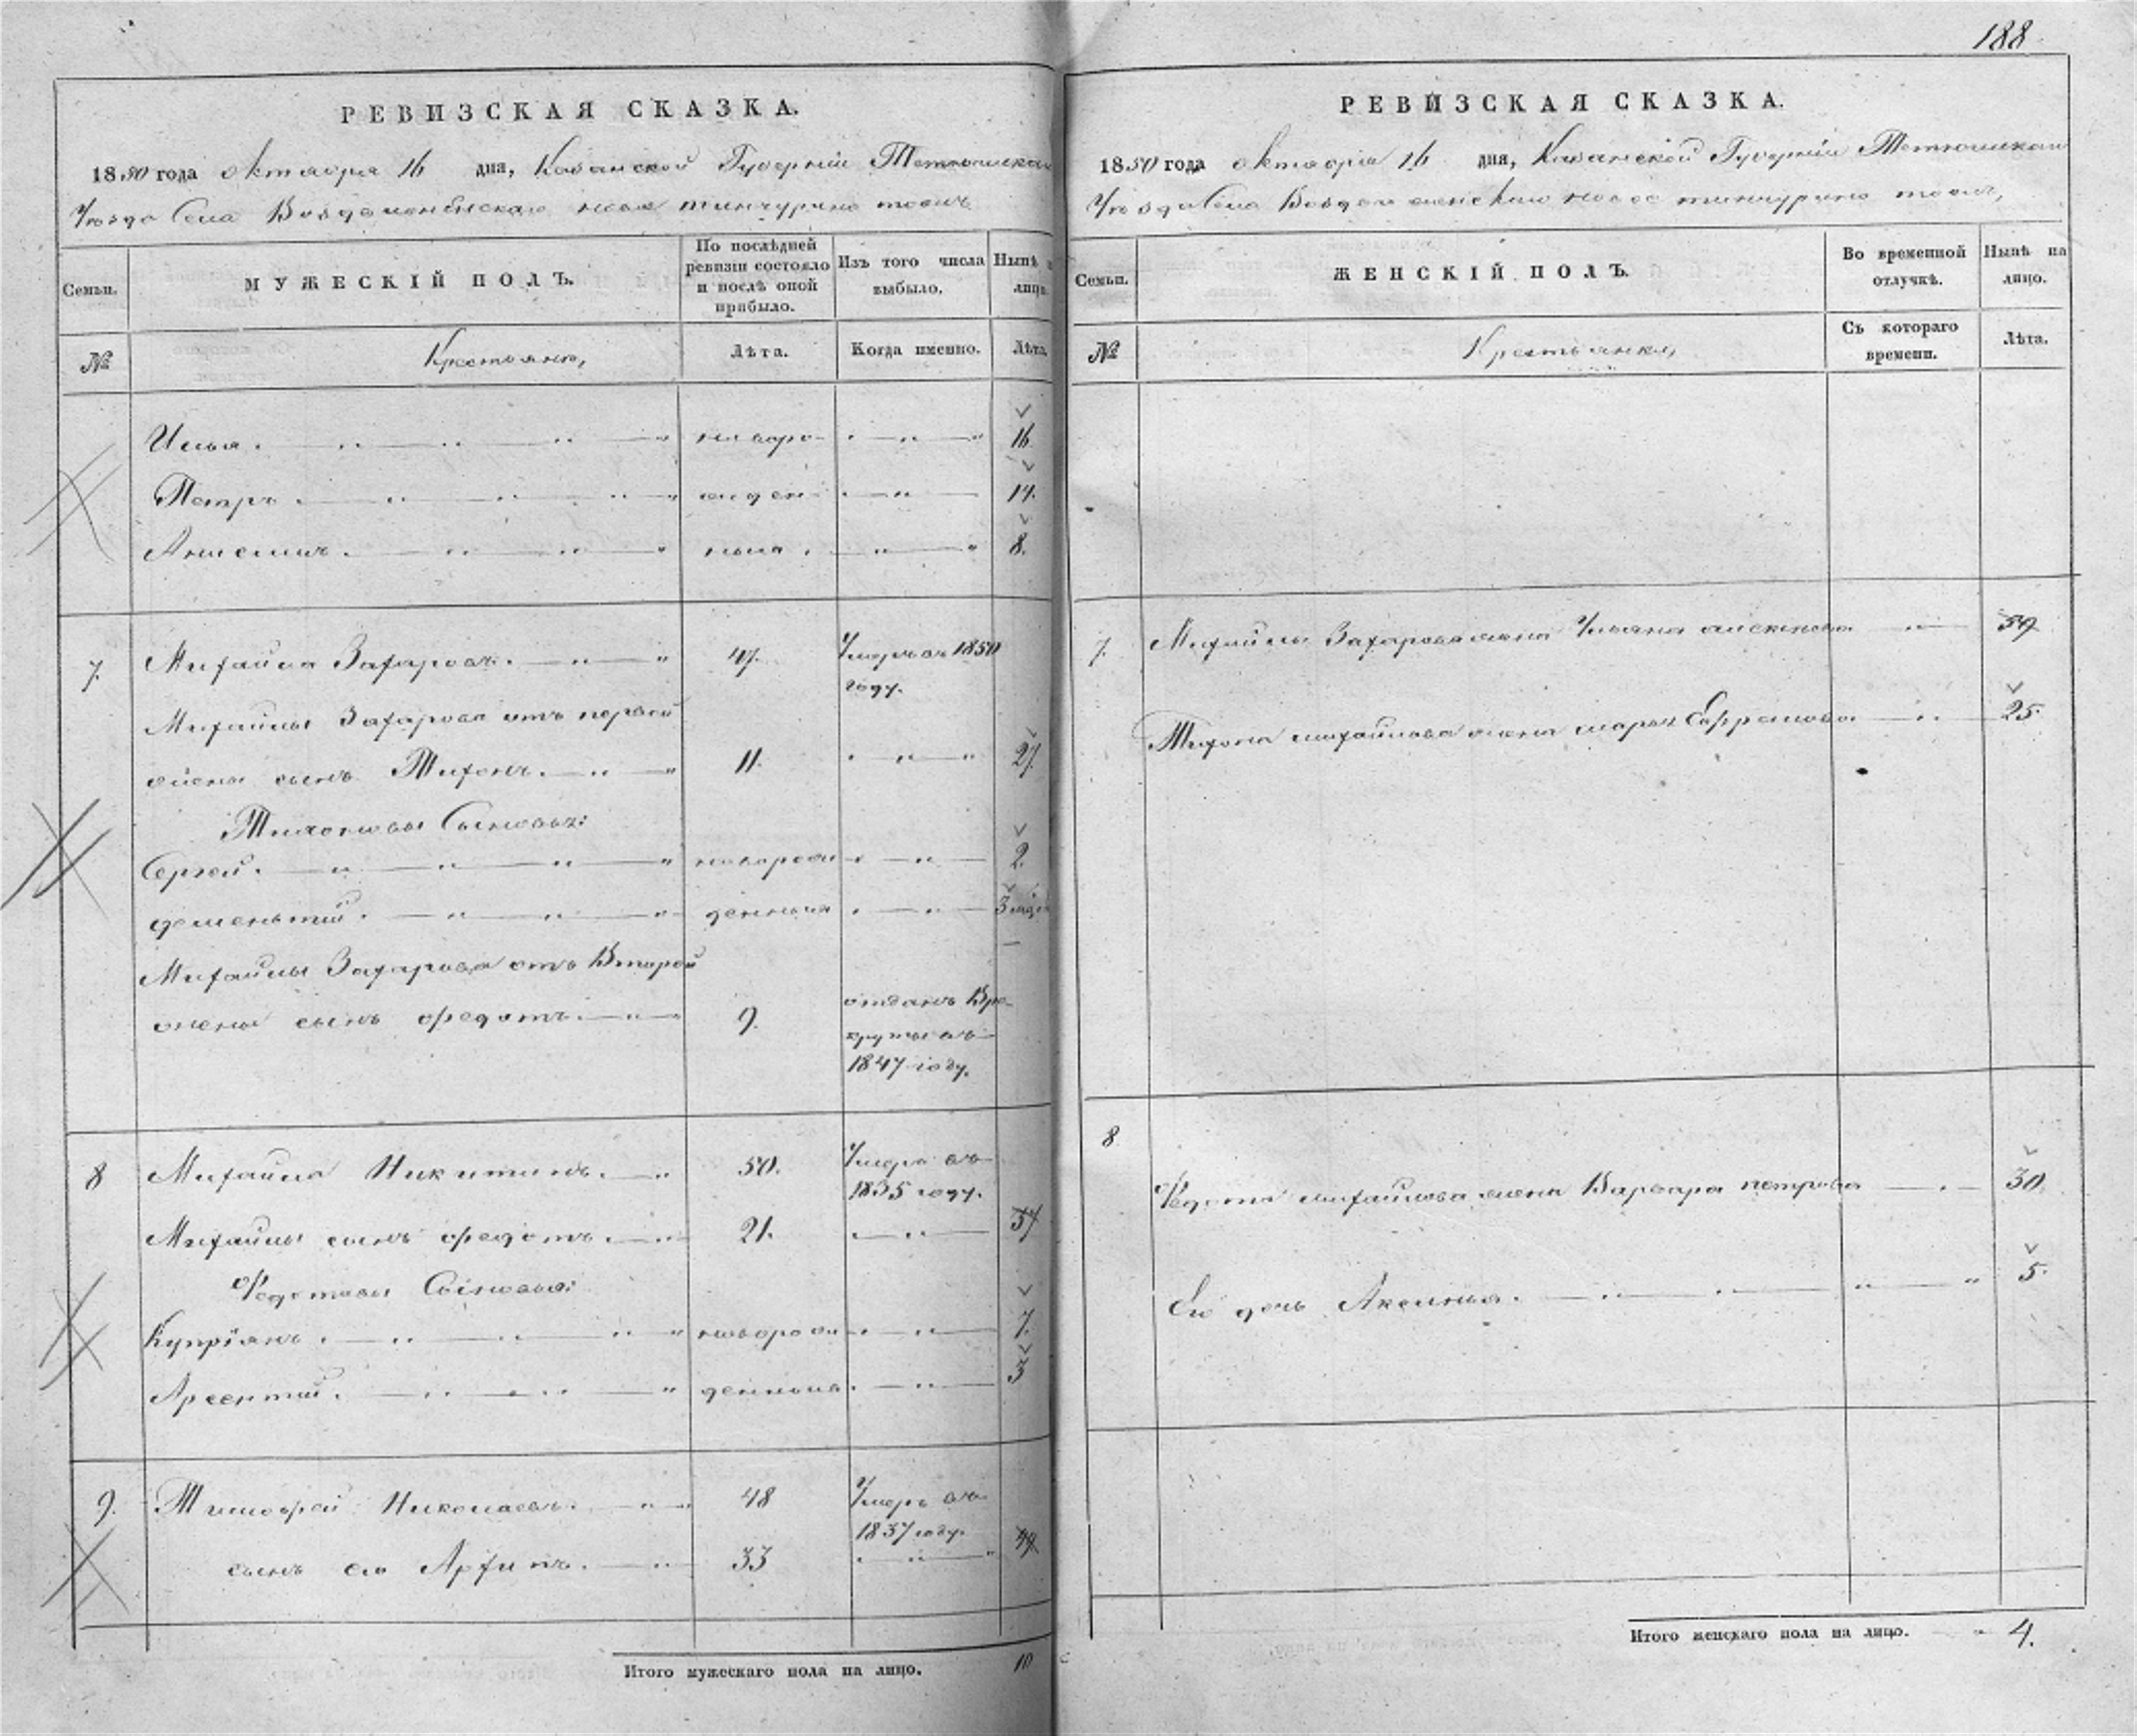 188
РЕВИЗСКАЯ СКАЗКА.
1850 года октября 16 дня, Казанской Губернии Тетюшскаго
Уезда Села Воздвиженскаго
Семьи. МУЖЕСКІЙ ПОЛЪ. По послѣдней ревизіи состояло и послѣ оной прибыло. Изъ того числа выбыло. Нынѣ на лицо.
№ Крестьяне, Лѣта. Когда именно. Лѣта.
Илья. новоро- 16.
Петръ. жден- 14.
Анисимъ. ныя. 8.
7. Михайла Захаровъ. 47. Умеръ въ 1850
году.
Михайлы Захарова отъ первой
жены сынъ Тихонъ. 11. 27.
Тихоновы Сыновья:
Сергей. новорож 2.
дементий. денныя 3 мѣс
Михайлы Захарова отъ Второй
жены сынъ федотъ. 9. отданъ Вре-
круты въ
1847 году.
8 Михайла Никитинъ. 50. Умеръ въ
1835 году.
Михайлы сынъ федотъ. 21. 37
Федотовы Сыновья:
Купріянъ. новорож 7.
Арсентий. денныя. 3
9. Тимофей Николаевъ. 48 Умеръ въ
1837 году.
сынъ его Архипъ. 33 49
Итого мужескаго пола на лицо. 10
РЕВИЗСКАЯ СКАЗКА.
1850 года октября 16 дня, Казанской Губерніи Тетюшскаго
Уезда Села Воздвиженскаго
Семьи. ЖЕНСКІЙ ПОЛЪ. Во временной отлучкѣ. Нынѣ на лицо.
№ Крестьянки, Съ котораго времени. Лѣта.
7. Михайлы Захарова жена Ульяна алексеева 59
Тихона михайлова жена марья Ефремова 25.
8
Федота михайлова жена Варвара петрова 30.
Его дочь Аксинья. 5.
Итого женскаго пола на лицо. 4.